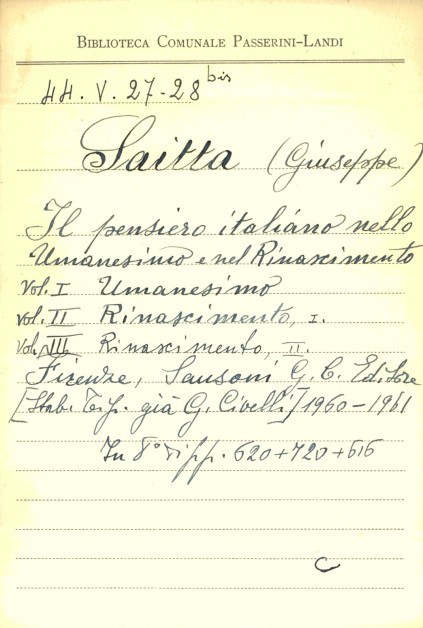 BIBLIOTECA COMUNALE PASSERINI-LANDI
44. V. 27-28 bis
Saitta (Giuseppe)
Il pensiero italiano nello
Umanesimo e nel Rinascimento
Vol. I Umanesimo
Vol. II Rinascimento, I.
Vol. III Rinascimento, II.
Firenze, Sansoni G. C. Editore
[Stab. Tip. già G. Civelli] 1960-1961
In 8° di pp. 620+720+616
C